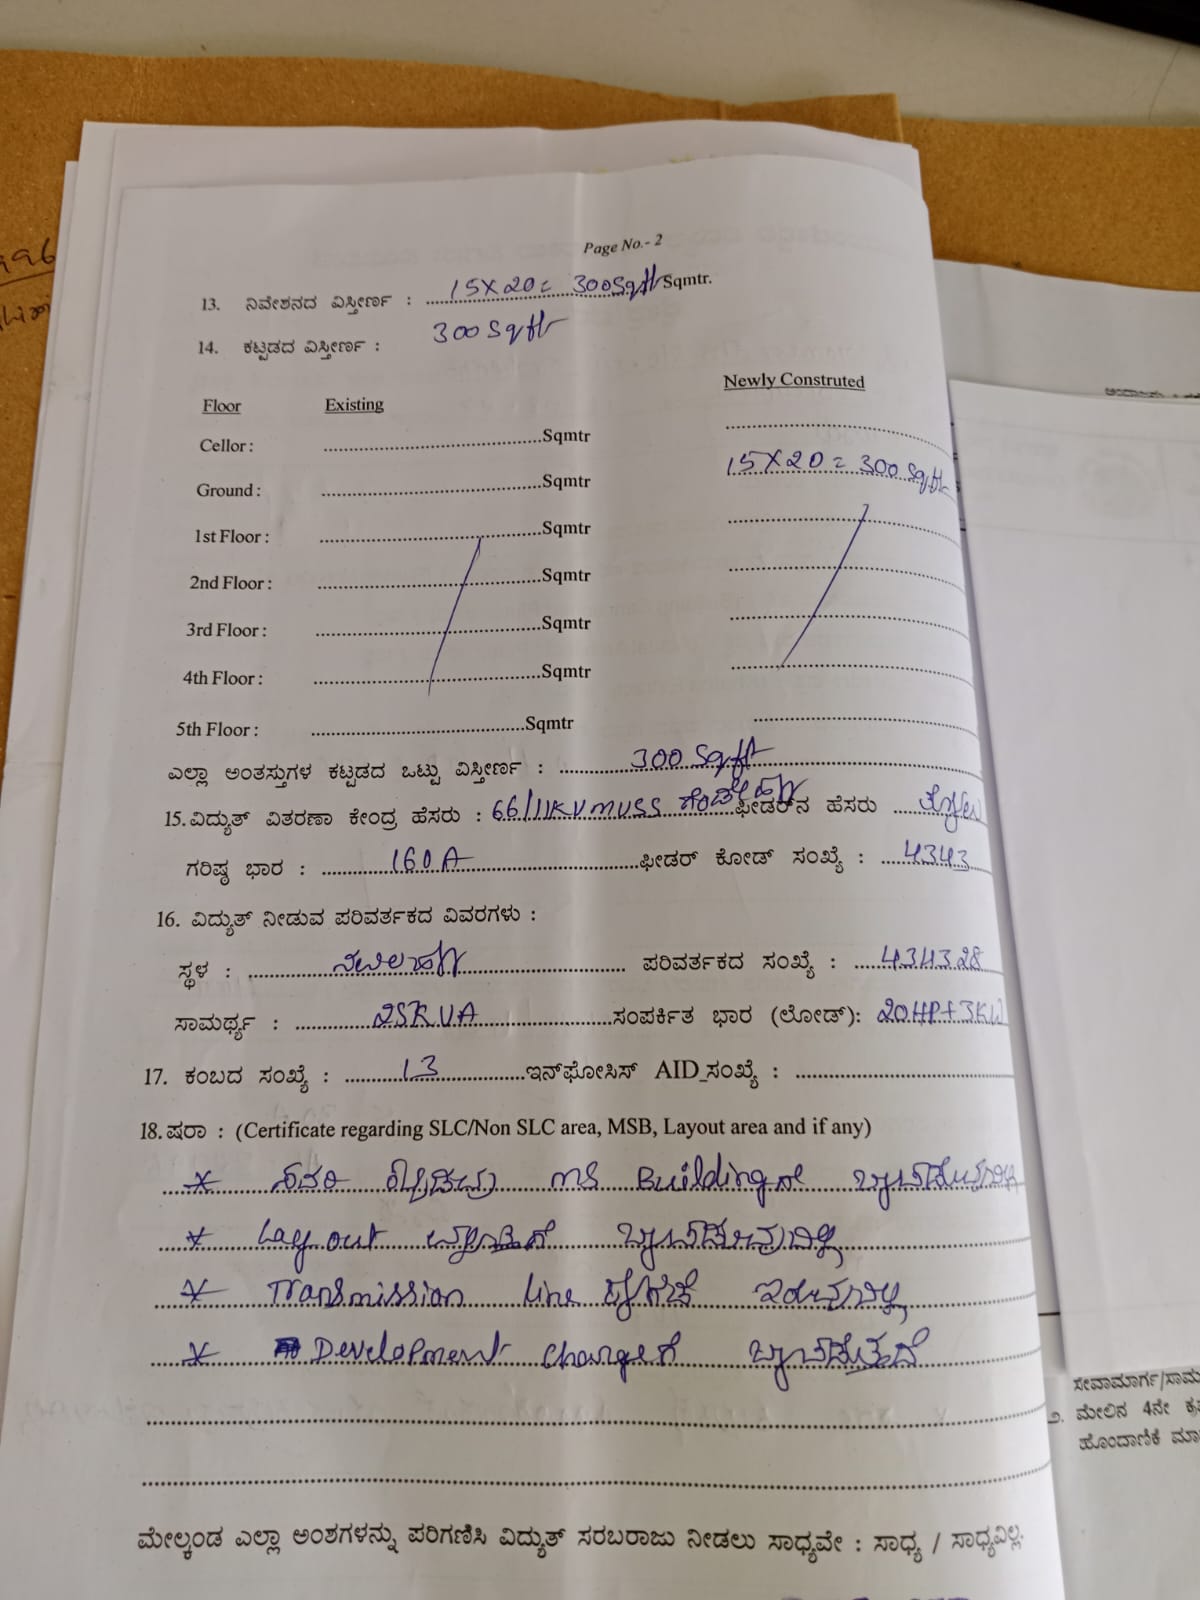 996
Page No.- 2
13. ನಿವೇಶನದ ವಿಸ್ತೀರ್ಣ : 15X20= 300Sqft Sqmtr.
14. ಕಟ್ಟಡದ ವಿಸ್ತೀರ್ಣ : 300 Sqft
Newly Construted
Floor Existing
Cellor : ..........Sqmtr ..........
Ground : ..........Sqmtr 15X20= 300 Sqft
1st Floor : ..........Sqmtr ..........
2nd Floor : ..........Sqmtr ..........
3rd Floor : ..........Sqmtr ..........
4th Floor : ..........Sqmtr ..........
5th Floor : ..........Sqmtr ..........
ಎಲ್ಲಾ ಅಂತಸ್ತುಗಳ ಕಟ್ಟಡದ ಒಟ್ಟು ವಿಸ್ತೀರ್ಣ : 300 Sqft
15. ವಿದ್ಯುತ್ ವಿತರಣಾ ಕೇಂದ್ರ ಹೆಸರು : 66/11KV MUSS ಫೀಡರ್‌ನ ಹೆಸರು
ಗರಿಷ್ಠ ಭಾರ : 160A ಫೀಡರ್ ಕೋಡ್ ಸಂಖ್ಯೆ : 4343
16. ವಿದ್ಯುತ್ ನೀಡುವ ಪರಿವರ್ತಕದ ವಿವರಗಳು :
ಸ್ಥಳ : ಪರಿವರ್ತಕದ ಸಂಖ್ಯೆ : 434328
ಸಾಮರ್ಥ್ಯ : 25KVA ಸಂಪರ್ಕಿತ ಭಾರ (ಲೋಡ್): 20HP+3KW
17. ಕಂಬದ ಸಂಖ್ಯೆ : 13 ಇನ್‌ಫೋಸಿಸ್ AID_ಸಂಖ್ಯೆ : ..........
18. ಷರಾ : (Certificate regarding SLC/Non SLC area, MSB, Layout area and if any)
* ಸದರಿ ಕಟ್ಟಡವು MS Buildingಗೆ
* Layout ವ್ಯಾಪ್ತಿಗೆ ಒಳಪಡುವುದಿಲ್ಲ
* Transmission line ಕೆಳಗಡೆ ಇರುವುದಿಲ್ಲ
* Development chargeಗೆ ಒಳಪಡುತ್ತದೆ
ಮೇಲ್ಕಂಡ ಎಲ್ಲಾ ಅಂಶಗಳನ್ನು ಪರಿಗಣಿಸಿ ವಿದ್ಯುತ್ ಸರಬರಾಜು ನೀಡಲು ಸಾಧ್ಯವೇ : ಸಾಧ್ಯ / ಸಾಧ್ಯವಿಲ್ಲ.
ಸೇವಾಮಾರ್ಗ/ಸಾಮ
೨. ಮೇಲಿನ 4ನೇ ಕ್ರ
ಹೊಂದಾಣಿಕೆ ಮಾ